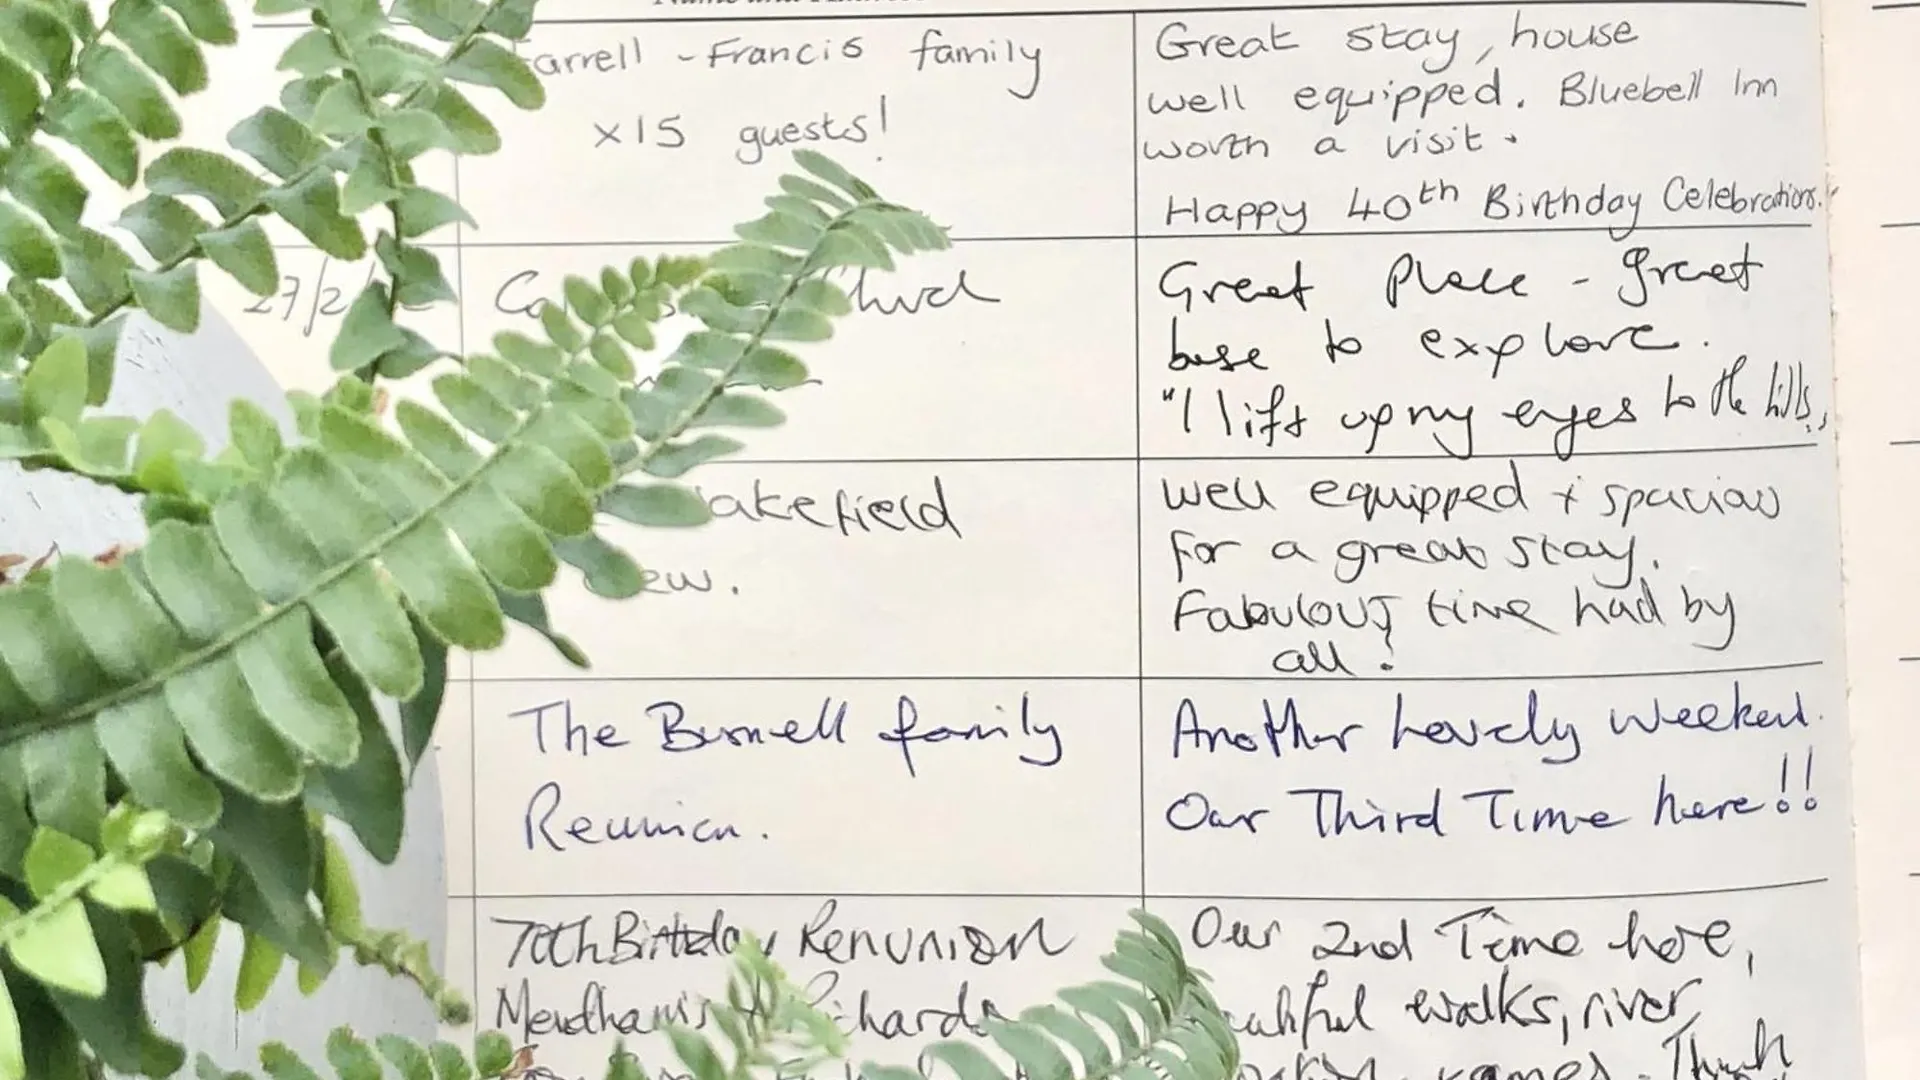 Farrell - Francis family
x15 guests!
Great stay, house
well equipped. Bluebell Inn
worth a visit.
Happy 40th Birthday Celebrations!
27/2/
Great Place - great
base to explore.
"I lift up my eyes to the hills,
Wakefield
ew.
Well equipped + spacious
for a great stay.
Fabulous time had by
all!
The Burnell family
Reunion.
Another Lovely Weekend.
Our Third Time here!!
70th Birthday Renunion
Our 2nd Time here,
walks, river,
games. Thank